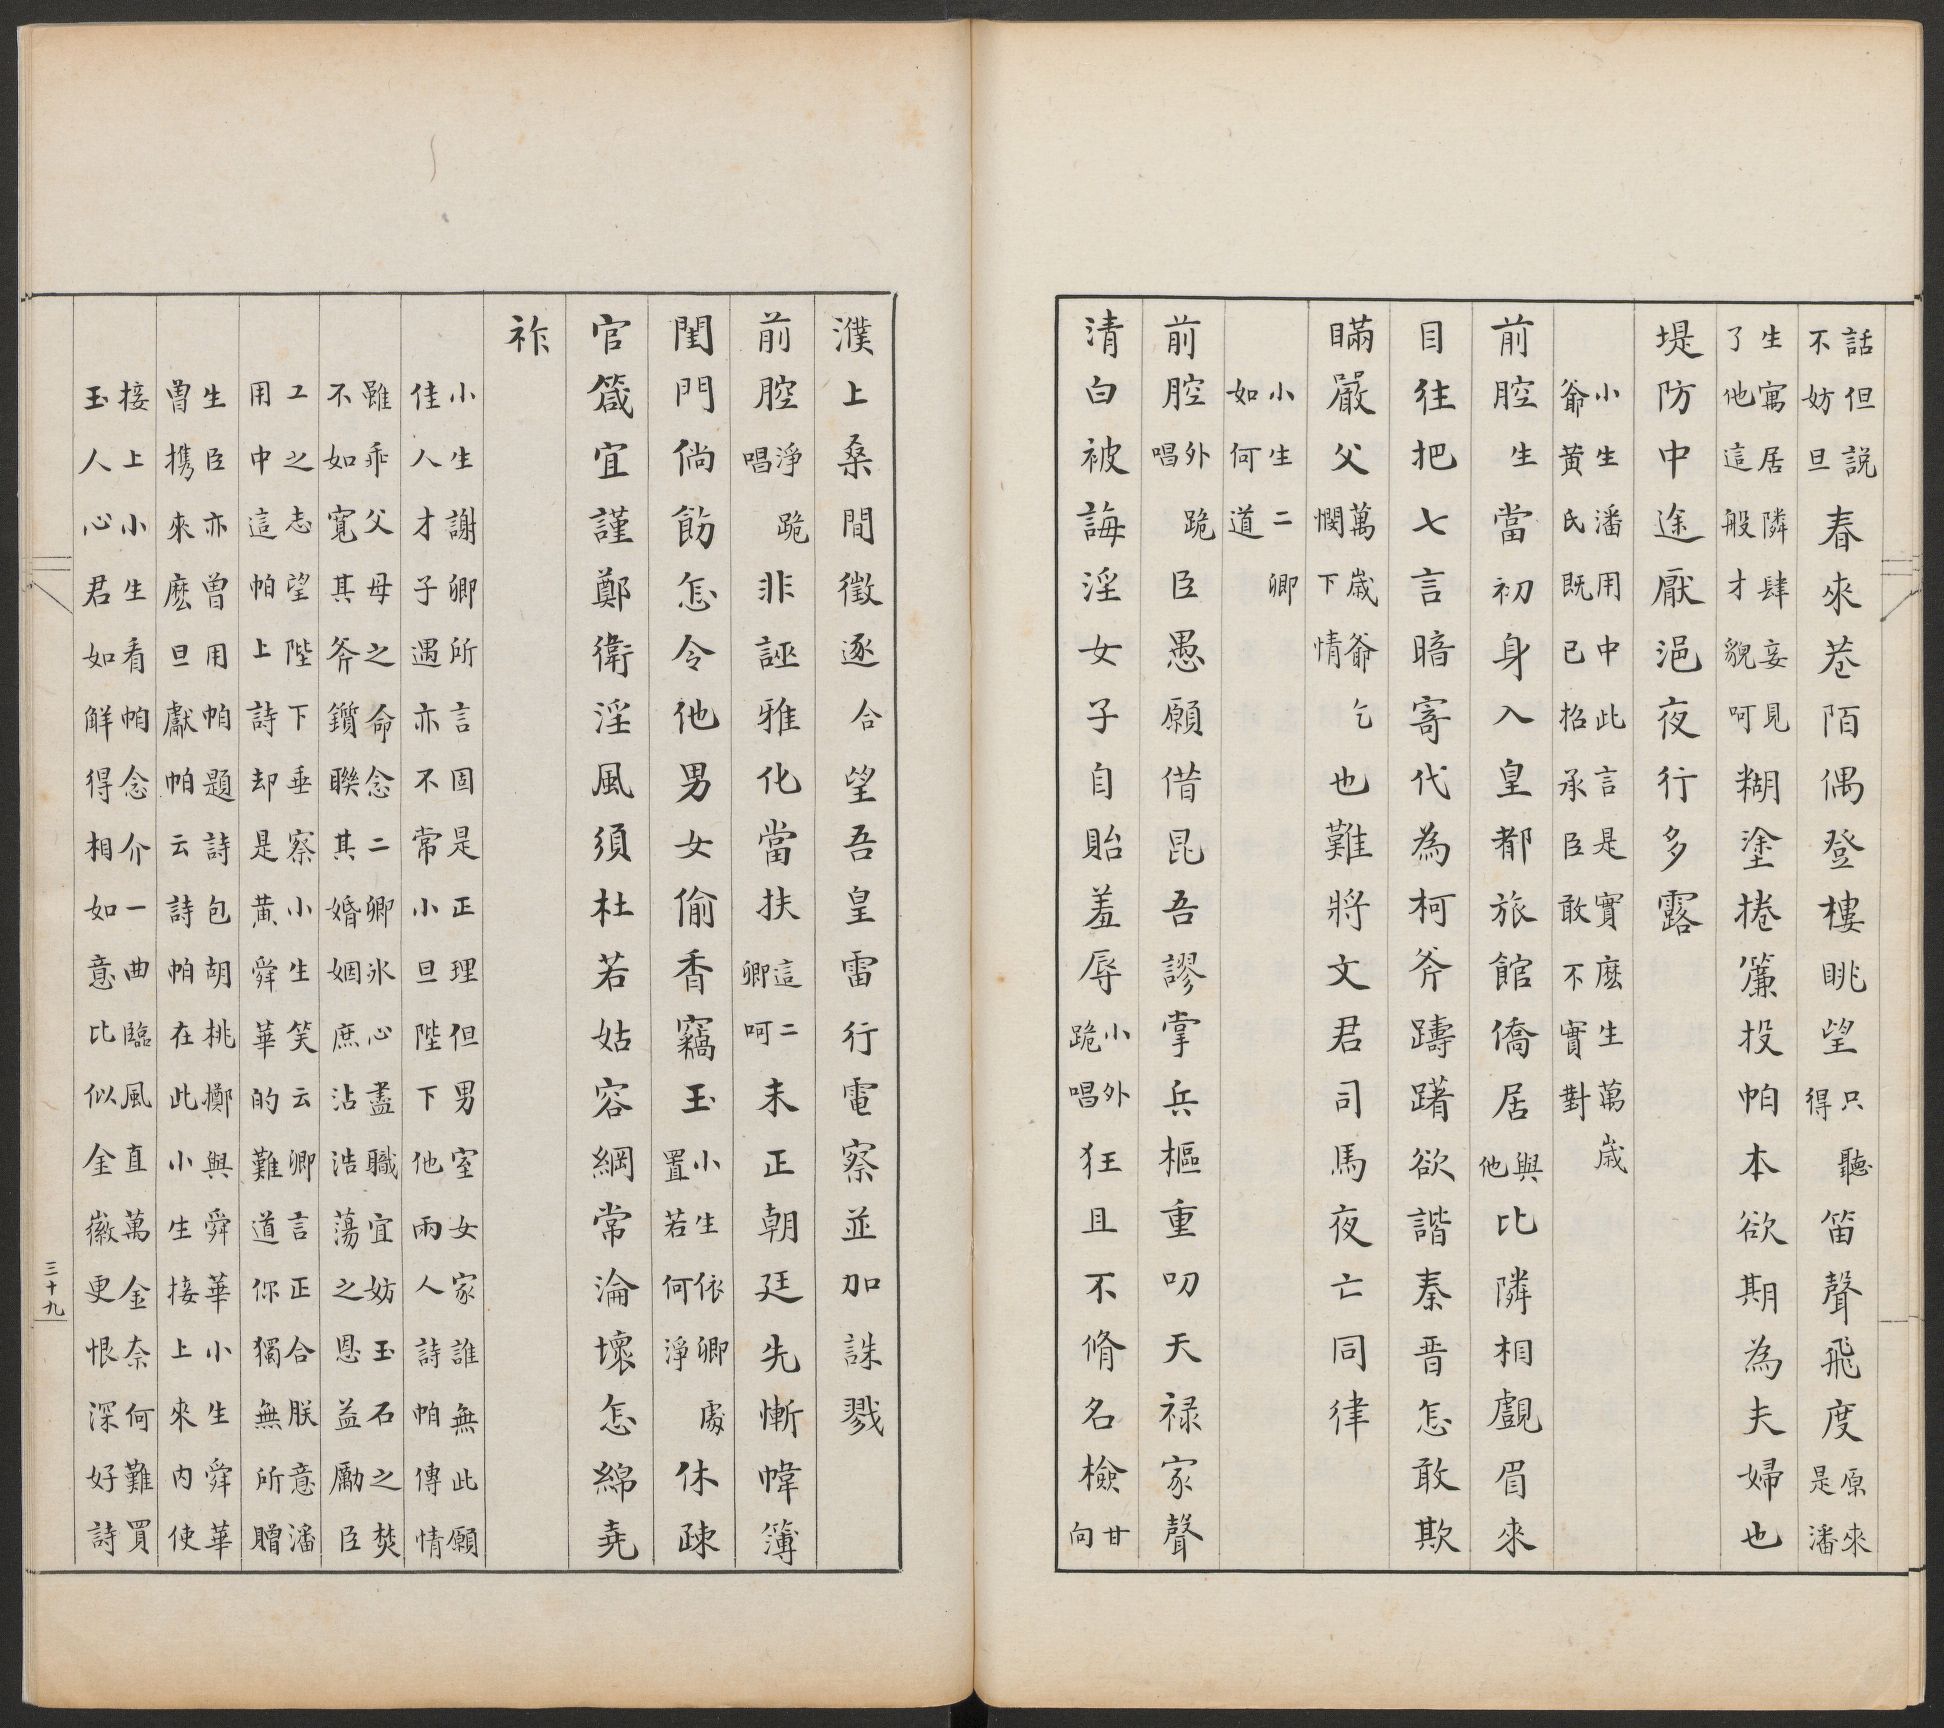 話但說不妨旦春來巷陌偶登樓眺望只聽得笛聲飛度原來是潘
生寓居隣肆妾見了他這般才貌呵糊塗捲簾投帕本欲期為夫婦也
堤防中途厭浥夜行多露
小生潘用中此言是實麽生萬歲爺黃氏既已招承臣敢不實對
前腔生當初身入皇都旅館僑居與他比隣相覷眉來
目往把七言暗寄代為柯斧躊躇欲諧秦晋怎敢欺
瞞嚴父萬歲爺乞憫下情也難將文君司馬夜亡同律
小生二卿如何道
前腔外跪唱臣愚願借昆吾謬掌兵樞重叨天禄家聲
清白被誨淫女子自貽羞辱小外跪唱狂且不脩名檢甘向
濮上桑間徵逐合望吾皇雷行電察並加誅戮
前腔淨跪唱非誣雅化當扶這二卿呵未正朝廷先慚幃簿
閨門倘飭怎令他男女偷香竊玉小生依卿處置若何淨休疎
官箴宜謹鄭衛淫風須杜若姑容綱常淪壞怎綿堯
祚
小生謝卿所言固是正理但男室女家誰無此願
佳人才子遇亦不常小旦陛下他兩人詩帕傳情
雖乖父母之命念二卿氷心盡職宜妨玉石之焚
不如寬其斧鑕聯其婚姻庶沾浩蕩之恩益勵臣
工之志望陛下垂察小生笑云卿言正合朕意潘
用中這帕上詩却是黃舜華的難道你獨無所贈
生臣亦曾用帕題詩包胡桃擲與舜華小生舜華
曾携來麽旦獻帕云詩帕在此小生接上來內使
接上小生看帕念介一曲臨風直萬金奈何難買
玉人心君如解得相如意比似金徽更恨深好詩
三十九